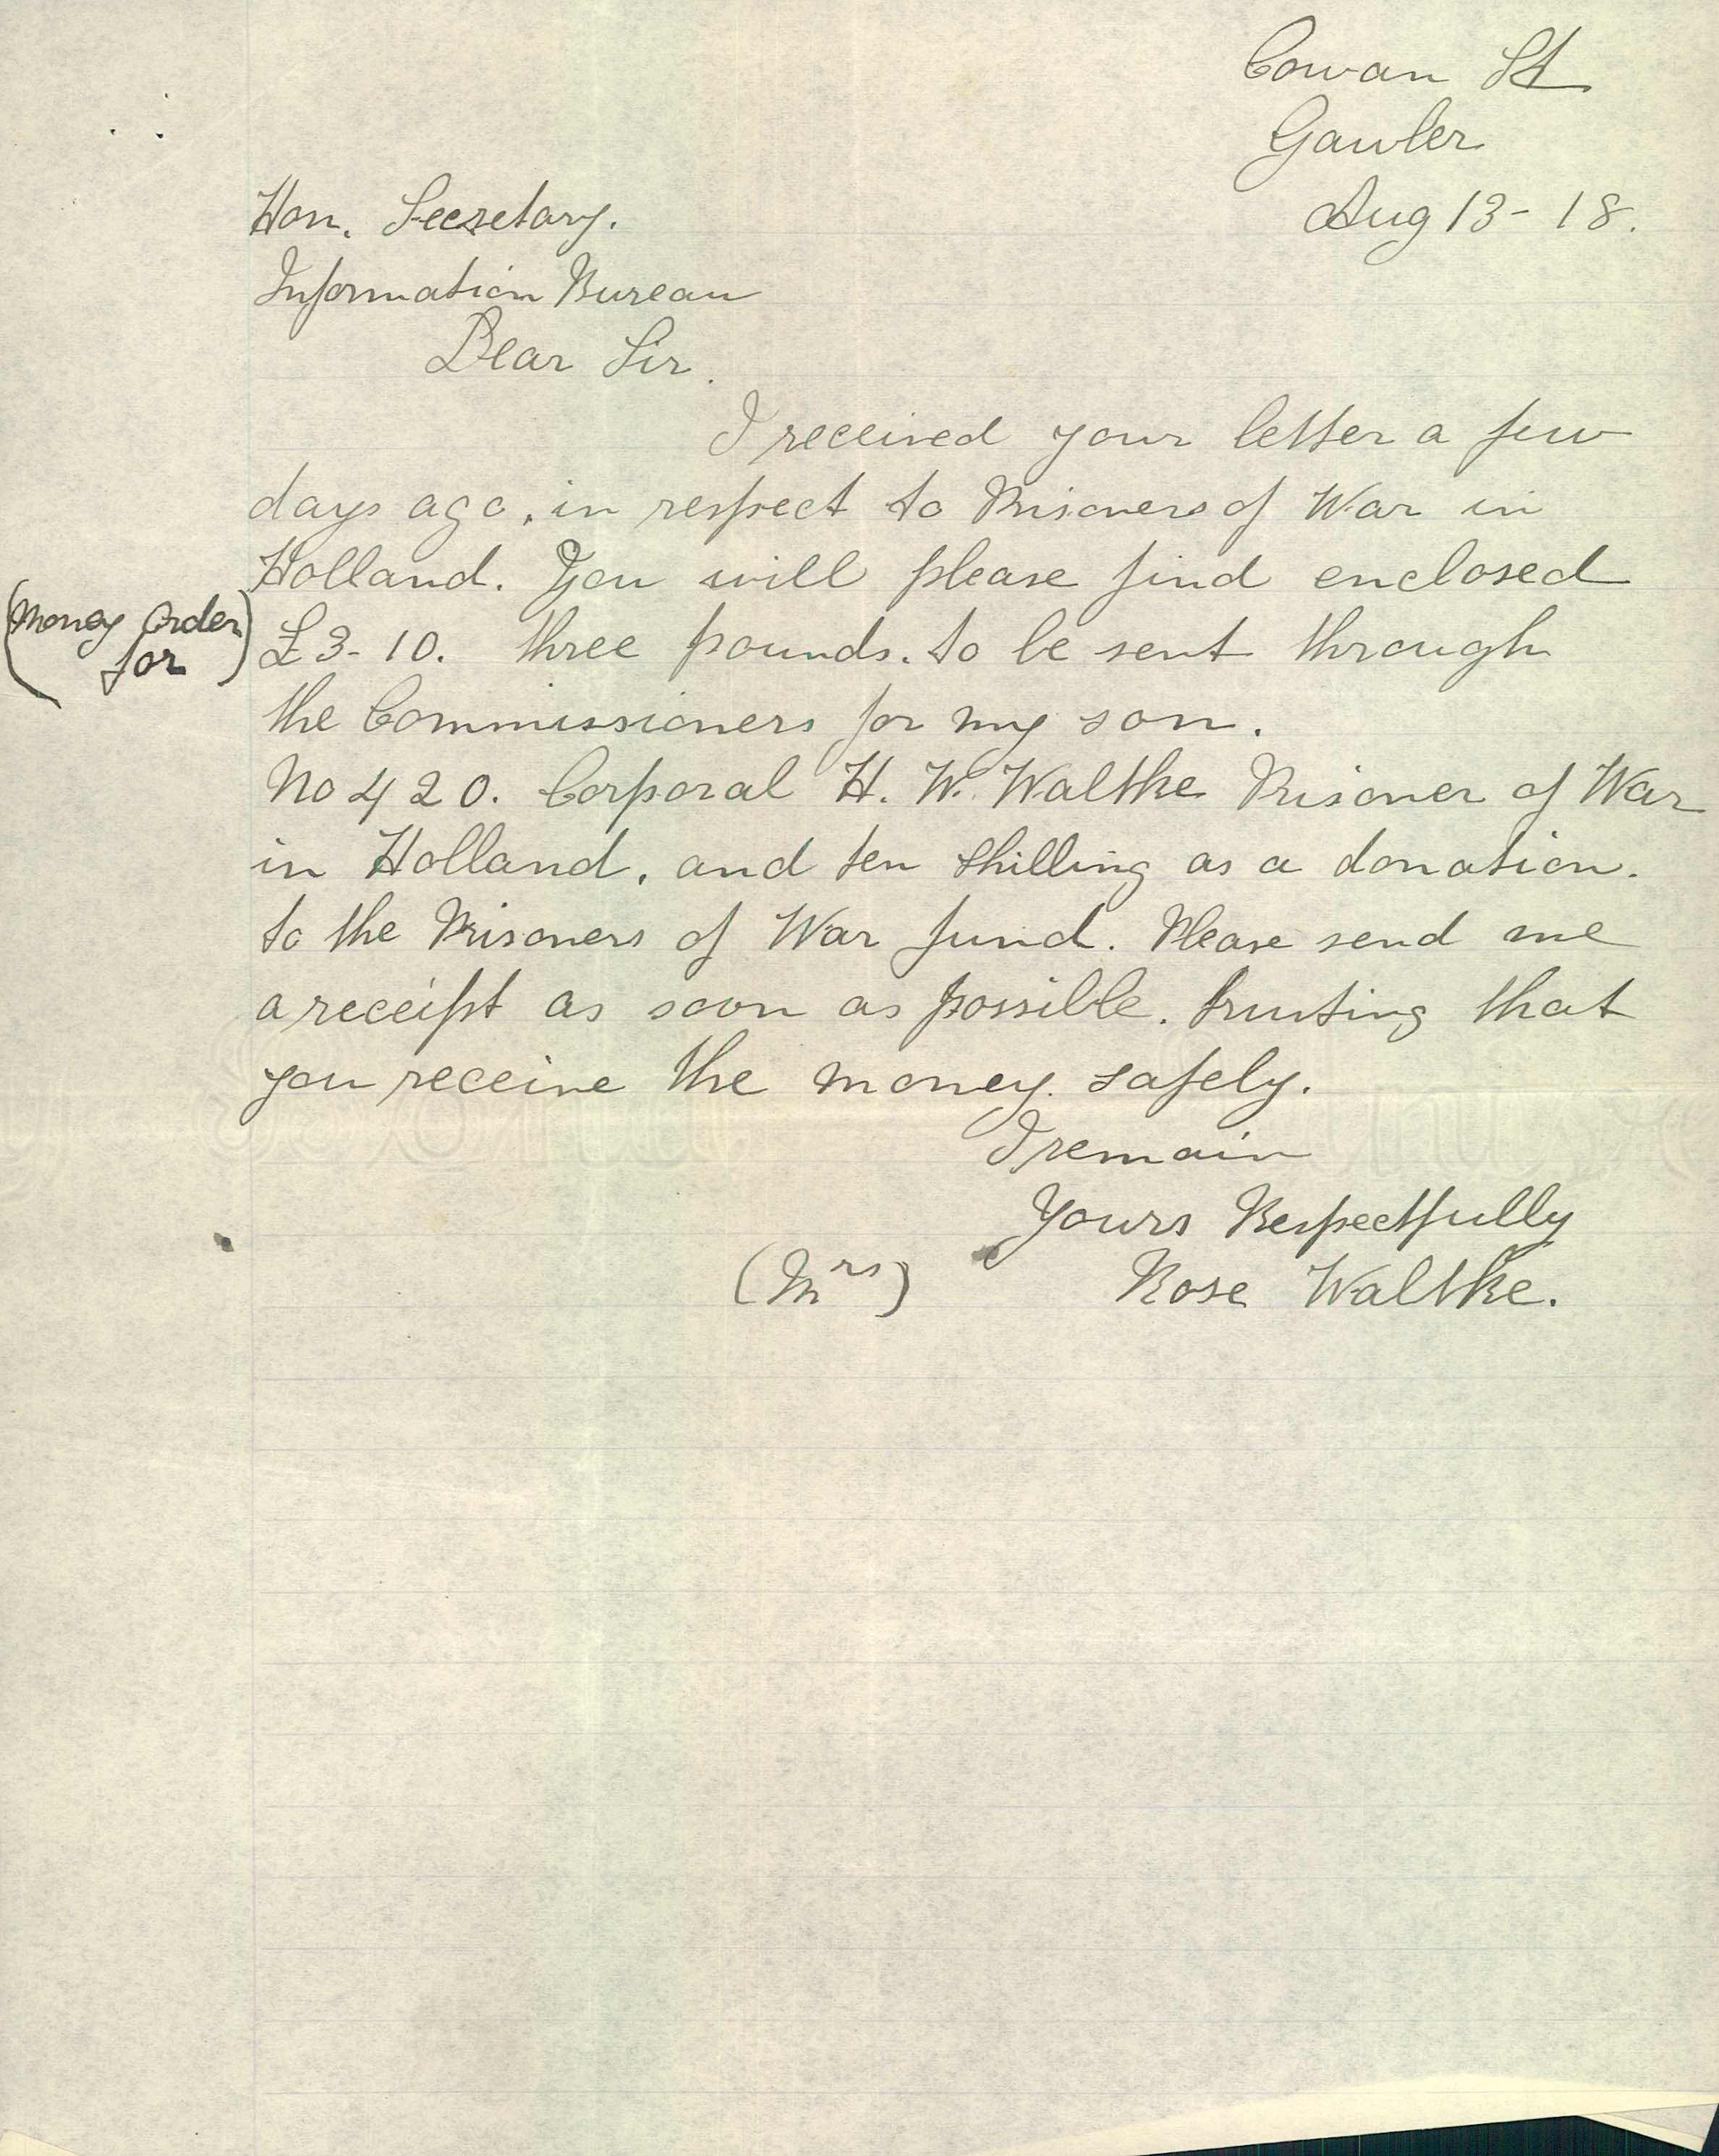 Cowan St
Gawler
Aug 13 - 18.
Hon. Secretary.
Information Bureau
Dear Sir.
I received your letter a few
days ago, in respect to Prisoners of War in
Holland. You will please find enclosed
(Money Order for) £3-10. three pounds. to be sent through
the Commissioners for my son.
No 420. Corporal H. W. Waltke Prisoner of War
in Holland, and ten shilling as a donation.
to the Prisoners of War fund. Please send me
a receipt as soon as possible. trusting that
you receive the money safely.
I remain
Yours Respectfully
(Mrs) Rose Waltke.